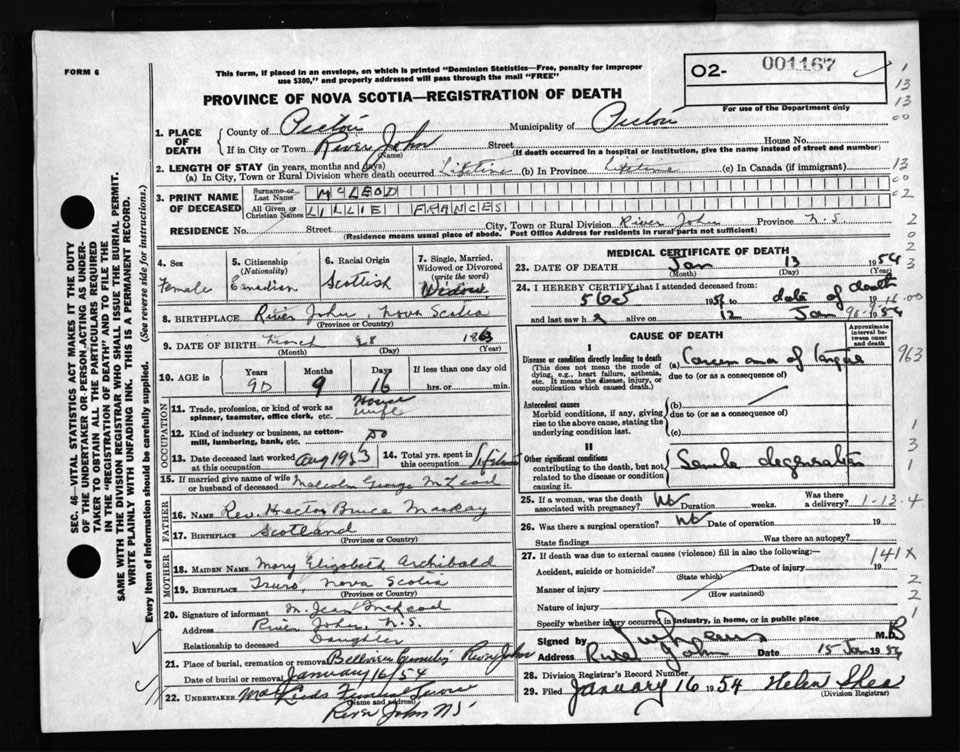 FORM 6
This form, if placed in an envelope, on which is printed "Dominion Statistics—Free, penalty for improper
use $300," and properly addressed will pass through the mail "FREE"
O2- 001167
For use of the Department only
PROVINCE OF NOVA SCOTIA—REGISTRATION OF DEATH
1. PLACE OF DEATH
County of Pictou Municipality of Pictou
If in City or Town River John Street House No.
(Name) (If death occurred in a hospital or institution, give the name instead of street and number)
2. LENGTH OF STAY (in years, months and days)
(a) In City, Town or Rural Division where death occurred Lifetime (b) In Province Lifetime (c) In Canada (if immigrant)
3. PRINT NAME OF DECEASED
Surname or Last Name McLEOD
All Given or Christian Names LILLIE FRANCES
RESIDENCE No. Street City, Town or Rural Division River John Province N.S.
(Residence means usual place of abode. Post Office Address for residents in rural parts not sufficient)
4. Sex Female
5. Citizenship (Nationality) Canadian
6. Racial Origin Scottish
7. Single, Married, Widowed or Divorced (write the word) Widow
8. BIRTHPLACE River John, Nova Scotia
(Province or Country)
9. DATE OF BIRTH March 28 1863
(Month) (Day) (Year)
10. AGE in Years 90 Months 9 Days 16 If less than one day old hrs. or min.
OCCUPATION
11. Trade, profession, or kind of work as spinner, teamster, office clerk, etc. House wife
12. Kind of industry or business, as cotton-mill, lumbering, bank, etc. do
13. Date deceased last worked at this occupation Aug 1953
14. Total yrs. spent in this occupation Lifetime
15. If married give name of wife or husband of deceased Malcolm George McLeod
FATHER
16. NAME Rev. Hector Bruce Mackay
17. BIRTHPLACE Scotland
(Province or Country)
MOTHER
18. MAIDEN NAME Mary Elizabeth Archibald
19. BIRTHPLACE Truro, Nova Scotia
(Province or Country)
20. Signature of informant M. Jean McLeod
Address River John, N.S.
Relationship to deceased Daughter
21. Place of burial, cremation or removal River John
Date of burial or removal January 16/54
22. UNDERTAKER Funeral Service
(Name and address)
River John NS
MEDICAL CERTIFICATE OF DEATH
23. DATE OF DEATH Jan 13 1954
(Month) (Day) (Year)
24. I HEREBY CERTIFY that I attended deceased from:
19 to date of death 19
and last saw h alive on 12 Jan 1954
CAUSE OF DEATH
Approximate interval between onset and death
I
Disease or condition directly leading to death
(This does not mean the mode of dying, e.g., heart failure, asthenia, etc. It means the disease, injury, or complication which caused death.
(a) Carcinoma of
due to (or as a consequence of)
963
Antecedent causes
Morbid conditions, if any, giving rise to the above cause, stating the underlying condition last.
(b)
due to (or as a consequence of)
(c)
II
Other significant conditions
contributing to the death, but not related to the disease or condition causing it.
Senile degeneration
25. If a woman, was the death associated with pregnancy? No Duration weeks. Was there a delivery? 1-13-4
26. Was there a surgical operation? No Date of operation 19
State findings Was there an autopsy?
27. If death was due to external causes (violence) fill in also the following:— 141X
Accident, suicide or homicide? Date of injury 19
(State which)
Manner of injury
(How sustained)
Nature of injury
Specify whether injury occurred in industry, in home, or in public place
Signed by M.D.
Address River John Date 15 Jan 1954
28. Division Registrar's Record Number
29. Filed January 16 1954 Helen Shea
(Division Registrar)
SEC. 46—VITAL STATISTICS ACT MAKES IT THE DUTY
OF THE UNDERTAKER OR PERSON ACTING AS UNDER-
TAKER TO OBTAIN ALL THE PARTICULARS REQUIRED
IN THE "REGISTRATION OF DEATH" AND TO FILE THE
SAME WITH THE DIVISION REGISTRAR WHO SHALL ISSUE THE BURIAL PERMIT.
WRITE PLAINLY WITH UNFADING INK. THIS IS A PERMANENT RECORD.
Every item of Information should be carefully supplied. (See reverse side for instructions.)